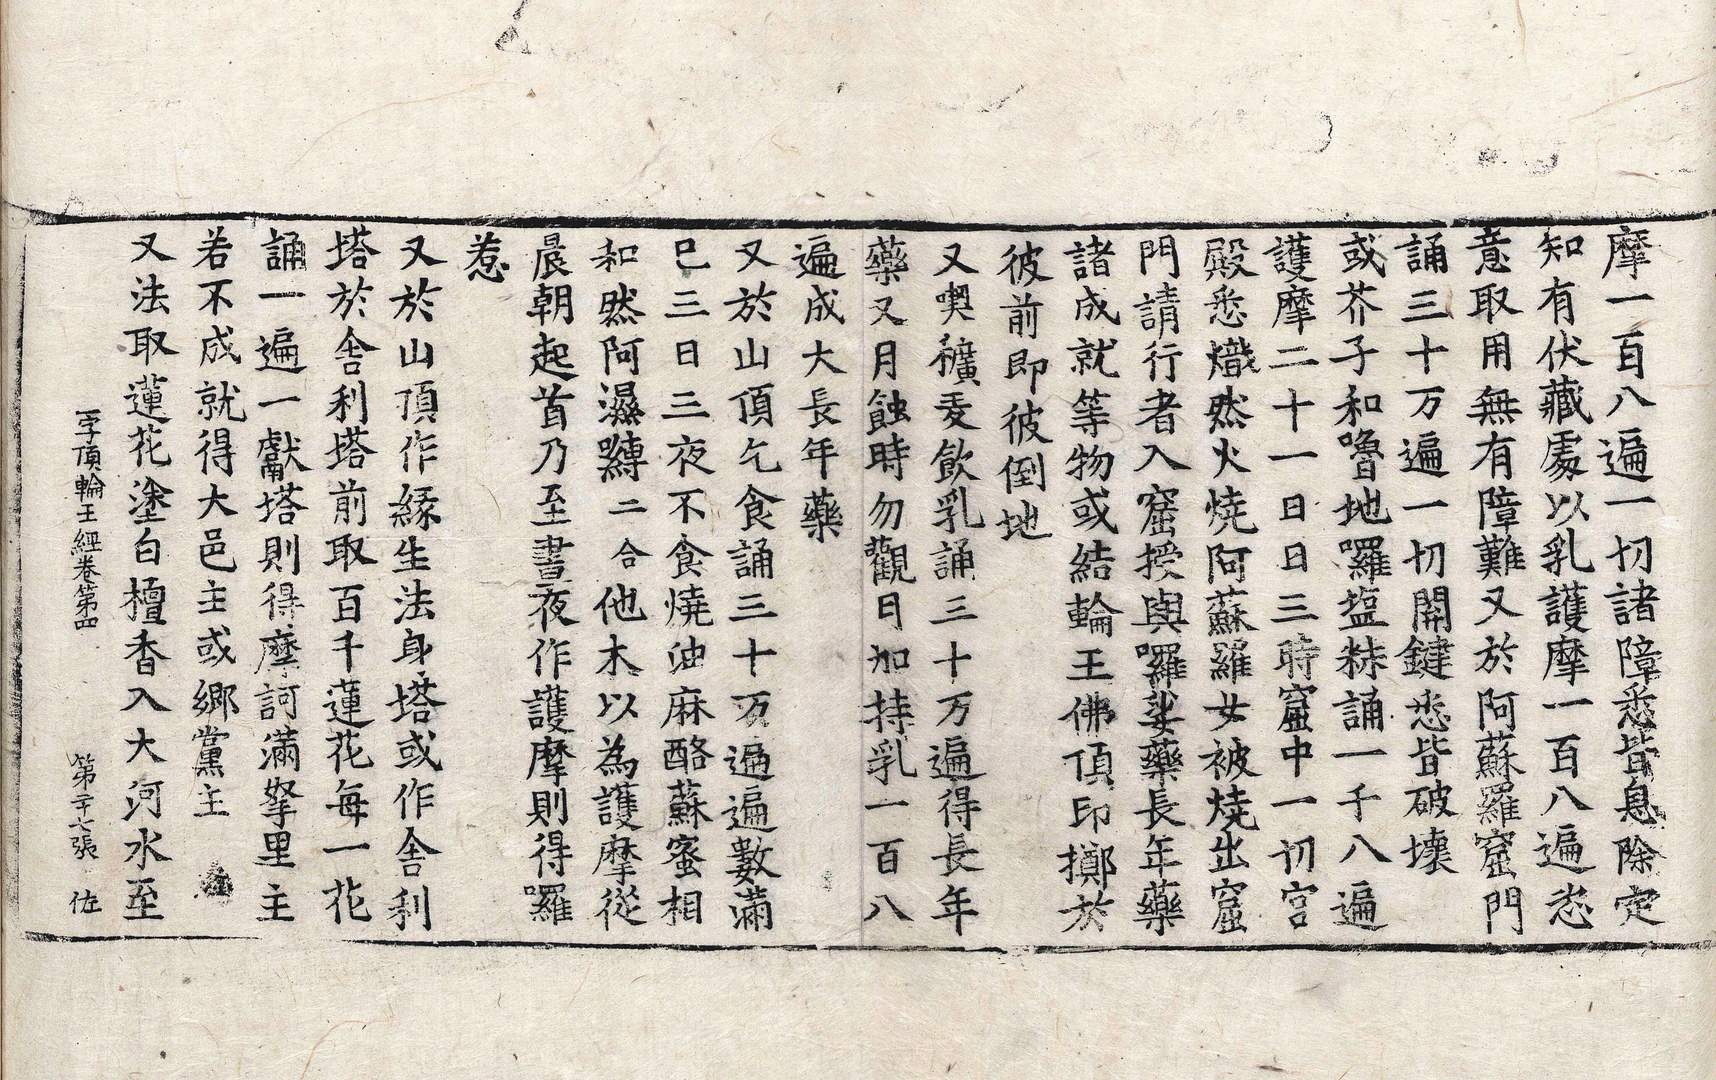 摩一百八遍一切諸障悉皆息除定
知有伏藏處以乳護摩一百八遍悉
意取用無有障難又於阿蘇羅窟門
誦三十万遍一切開鍵悉皆破壞
或芥子和嚕地囉塩粖誦一千八遍
護摩二十一日日三時窟中一切宮
殿悉熾然火燒阿蘇羅女被燒出窟
門請行者入窟授與囉娑藥長年藥
諸成就等物或結輪王佛頂印擲於
彼前即彼倒地
又喫穬麦飲乳誦三十万遍得長年
藥又月蝕時勿觀日加持乳一百八
遍成大長年藥
又於山頂乞食誦三十万遍遍數滿
已三日三夜不食燒油麻酪蘇蜜相
和然阿濕嚩二合他木以為護摩從
晨朝起首乃至晝夜作護摩則得羅
惹
又於山頂作緣生法身塔或作舍利
塔於舍利塔前取百千蓮花每一花
誦一遍一獻塔則得摩訶滿拏里主
若不成就得大邑主或鄉黨主
又法取蓮花塗白檀香入大河水至
一字頂輪王經卷第四 第二十七張 佐